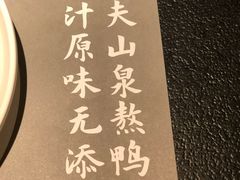 夫山泉熬鸭
汁原味无添